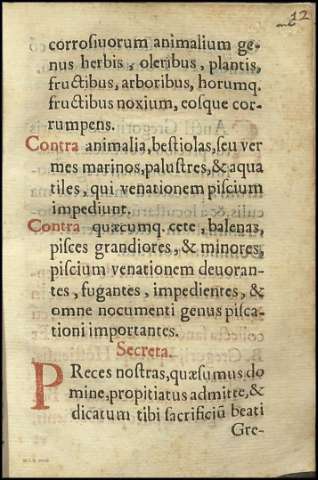 12
corrosiuorum animalium ge-
nus herbis, oleribus, plantis,
fructibus, arboribus, horumq.
fructibus noxium, eosque cor-
rumpens.
Contra animalia, bestiolas, seu ver
mes marinos, palustres, & aqua
tiles, qui venationem piscium
impediunt.
Contra quæcumq. cete, balenas,
pisces grandiores, & minores,
piscium venationem deuoran-
tes, fugantes, impedientes, &
omne nocumenti genus pisca-
tioni importantes.
Secreta.
PReces nostras, quæsumus do
mine, propitiatus admitte, &
dicatum tibi sacrificiū beati
Gre-